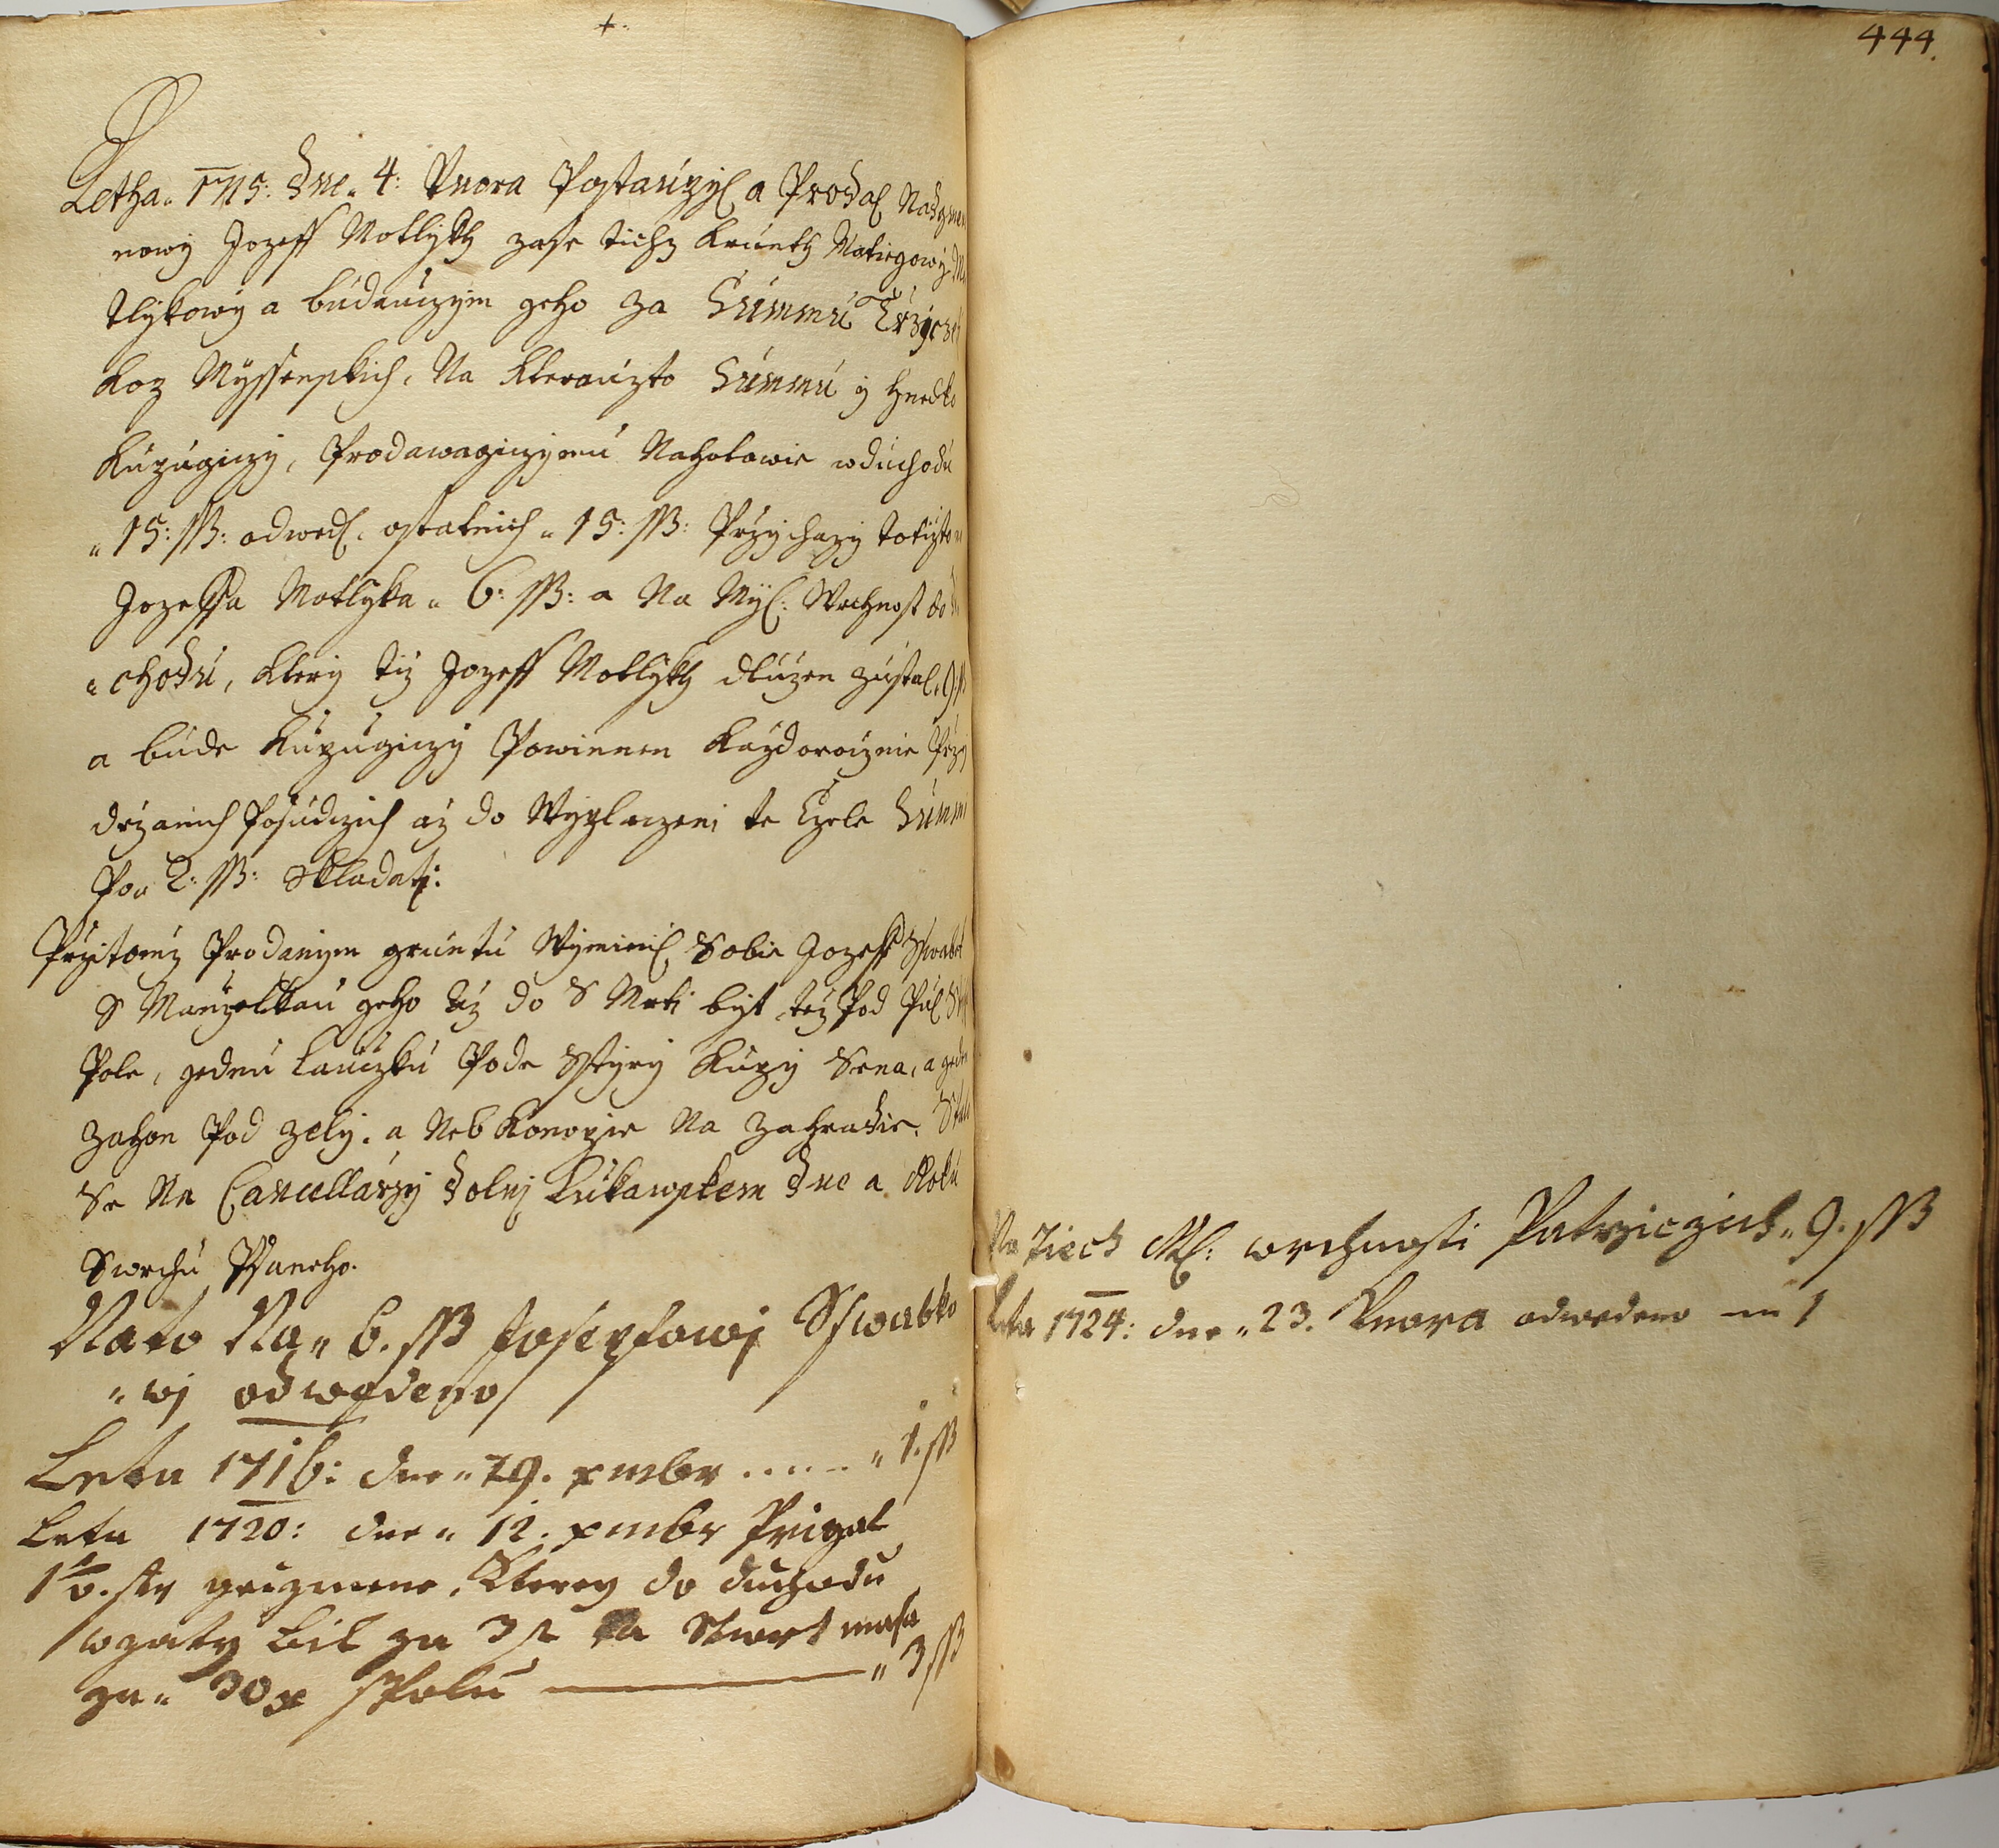 444.
Letha. 1715: Dne. 4: Vnora Postaupyl a Prodal Nadgme
nowy Jozeff Motlykh zase tichz Krunth Matiegowy
tlykowy a buduczym geho za Summu Trzycze
Kop Myssenskich, Na Kterauzto Summu y hnedko
Kupugiczy, Prodawagiczymu Nahotowie wduchodu
" 15: ßß: odwedl, ostatnich " 15: ßß: Przychazy totizto
Jozeffa Motlyka " 6: ßß: a Na Myl: Wrchnost do
" chodu, Ktery tiz Jozeff Motlykh dluzen zustal " 9: ßß
a bude Kupugiczy Powinnen Kazdorocznie Przy
drzanich Posudczich az do Wyplaczeni te Czele Summi
Po " 2: ßß: Skladati:
Przitomz Prodanym gruntu Wyminil Sobie Jozeff Sswabek
S Manzelkau geho tiz do S Mrti byt, tez Pod Pul
Pole, gednu lauczku Pode Sstyry Kupy Sena, a gede
zahon Pod zely. a Neb Konopie Na zahradie. Stalo
Se Na Cancellarzy Dolnj Lukawskem Dne a Roku
Swrchu Psaneho.
Na to Na " 6. ßß Josepfowj Sswabko
" wj odwedeno
Leta 1716: dne " 29. xmbr ..... " 1. ßß
Leta 1720: dne " 12. xmbr Prigal
str geczmene, Kterey do duchodu
wzaty bil za 3 a Stwrt masa
za " 30 x spolu " 3 ßß
Na Tiech Ml: wrchnosti Patrziczich " 9. ßß
Leta 1724: dne " 23. Vnora odwedeno 1